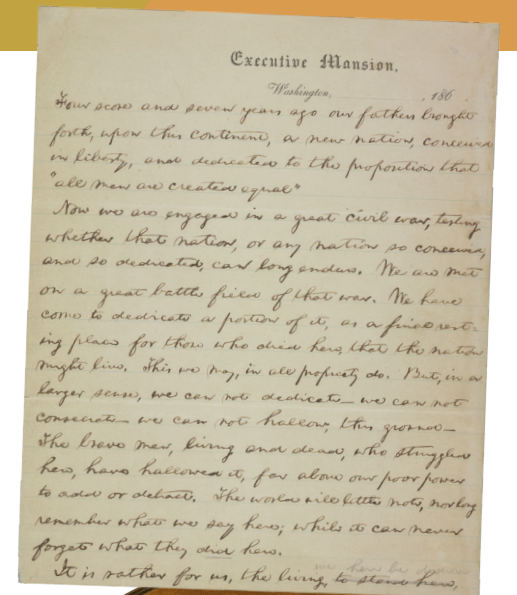 Executive Mansion,
Washington, , 186
Four score and seven years ago our fathers brought
forth, upon this continent, a new nation, conceived
in liberty, and dedicated to the proposition that
"all men are created equal"
Now we are engaged in a great civil war, testing
whether that nation, or any nation so conceived,
and so dedicated, can long endure. We are met
on a great battle field of that war. We have
come to dedicate a portion of it, as a final rest-
ing place for those who died here, that the nation
might live. This we may, in all propriety do. But, in a
larger sense, we can not dedicate — we can not
consecrate — we can not hallow, this ground —
The brave men, living and dead, who struggled
here, have hallowed it, far above our poor power
to add or detract. The world will little note, nor long
remember what we say here; while it can never
forget what they did here.
we here be dedica
It is rather for us, the living, to stand here,